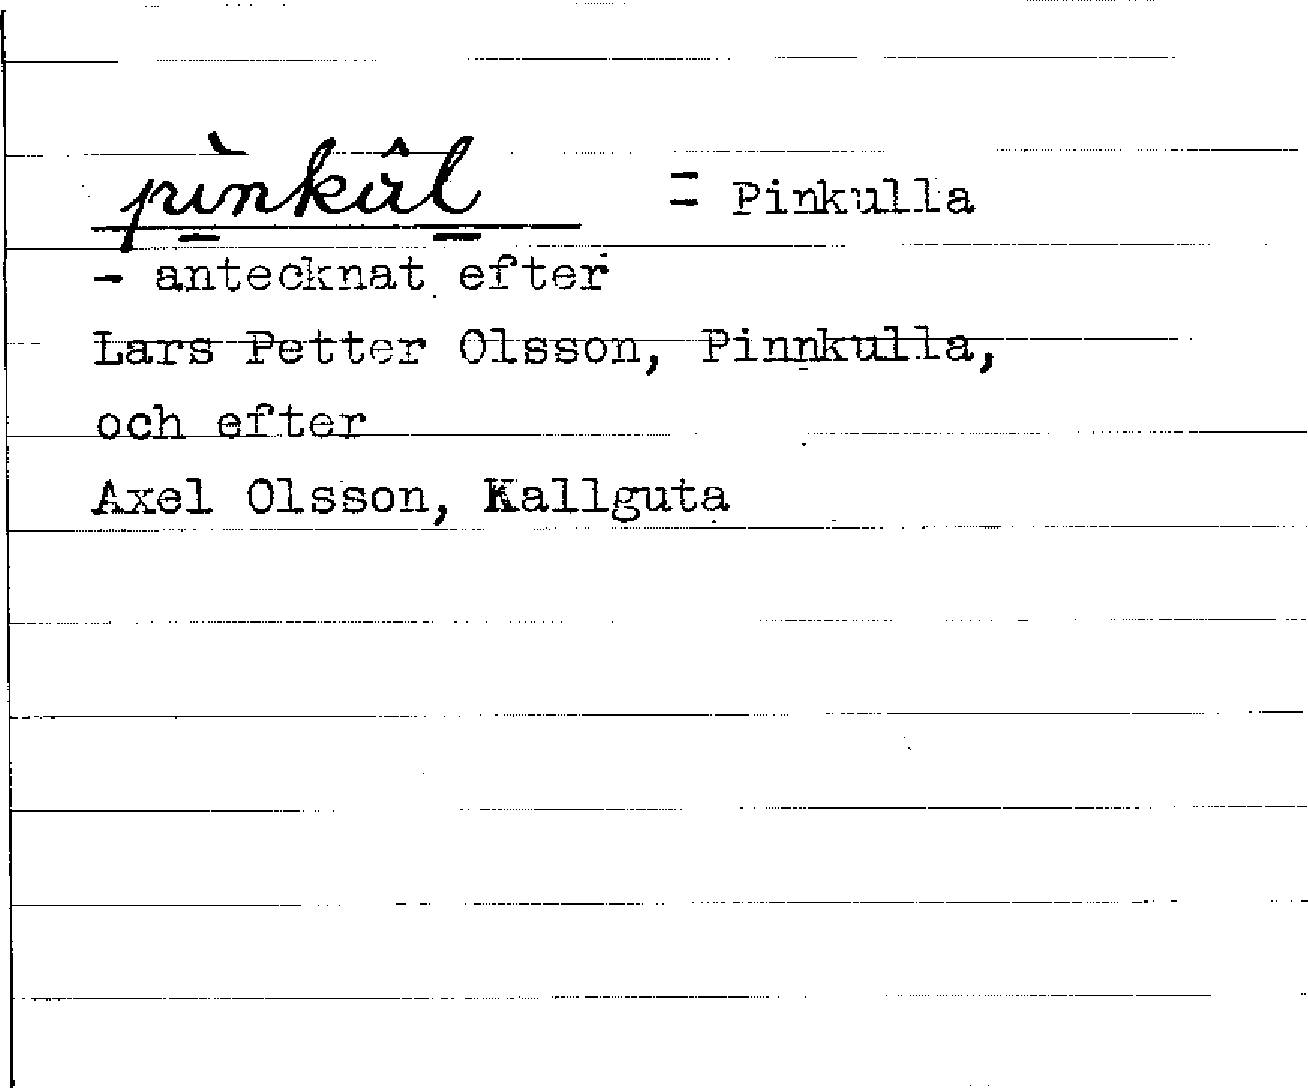 pìnkûl = Pinkulla
- antecknat efter
Lars Petter Olsson, Pinnkulla,
och efter
Axel Olsson, Kallguta